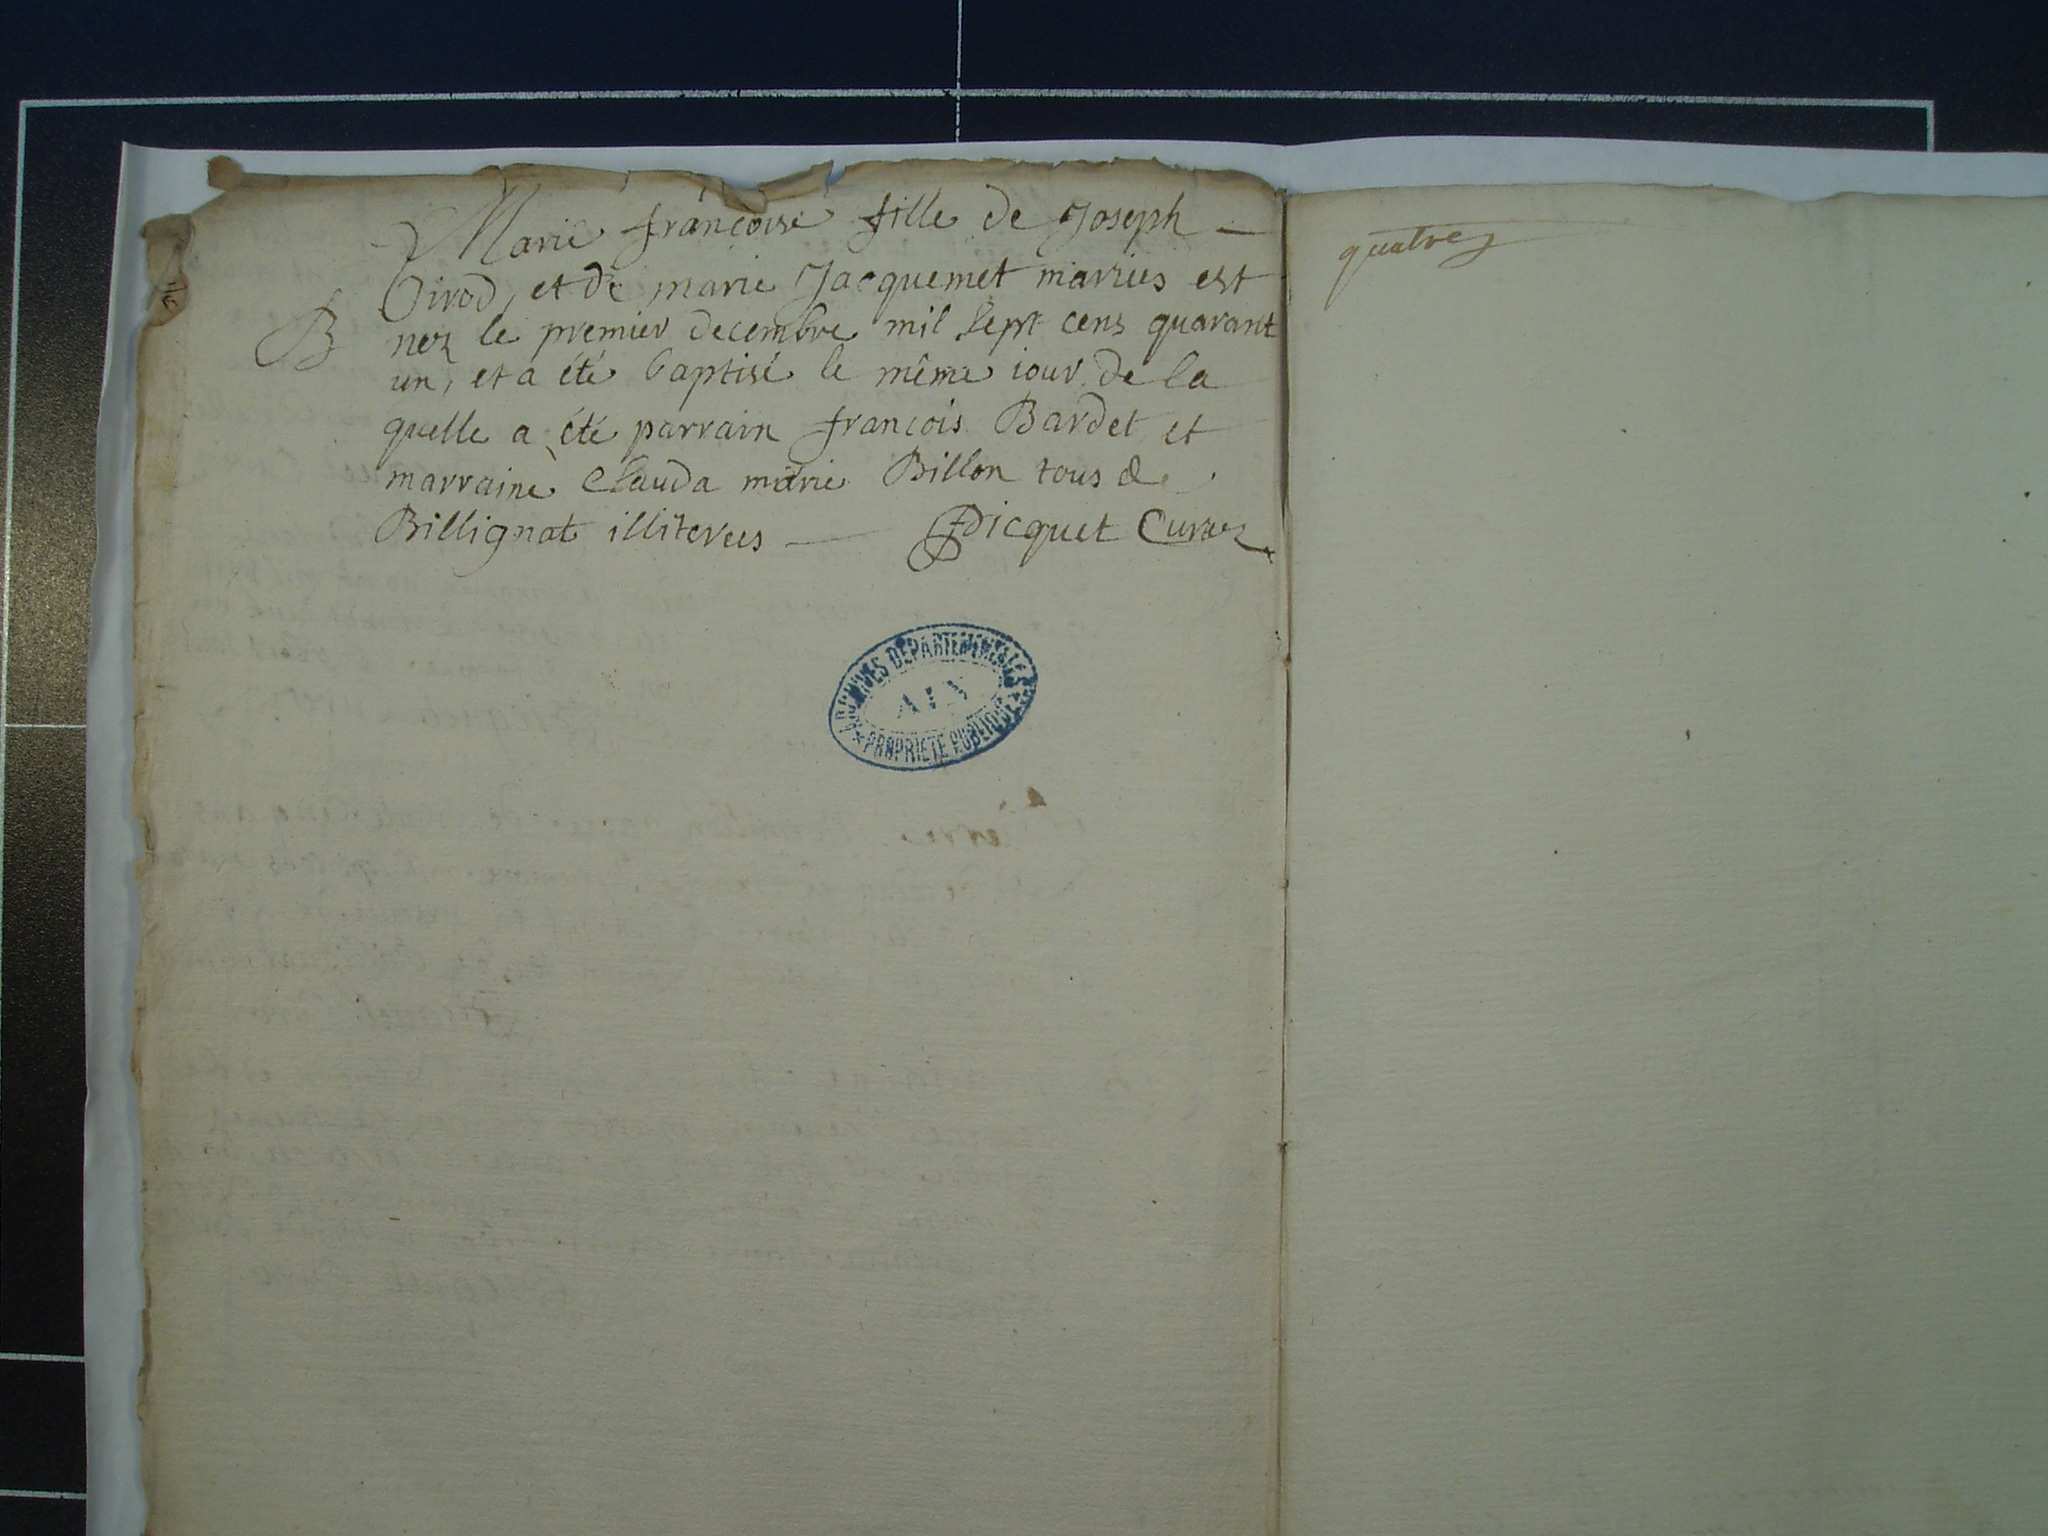 Marie françoise fille de Joseph
Girod, et de marie Jacquemet marries est
B nez le premier decembre mil sept cens quarant
un, et a été baptisé le même iour de la
quelle a été parrain françois Bardet et
marraine Clauda marie Billon tous de
Billignat illiterees — Picquet Curez
ARCHIVES DEPARTEMENTALES
AIN
PROPRIETE PUBLIQUE
quatre